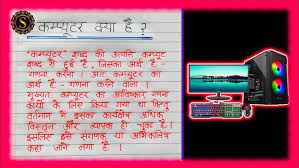 S
कम्प्यूटर क्या है ?
'कम्प्यूटर' शब्द की उत्पत्ति कम्प्यूट
शब्द से हुई है, जिसका अर्थ है -
गणना करना । अतः कम्प्यूटर का
अर्थ है - गणना करने वाला ।
मुख्यतः कम्प्यूटर का आविष्कार गणना
कार्यों के लिए किया गया था किन्तु
वर्तमान में इसका कार्यक्षेत्र अधिक
विस्तृत और व्यापक हो चुका है ।
इसलिए इसे संगणक या अभिकलित्र
कहा जाने लगा है ।